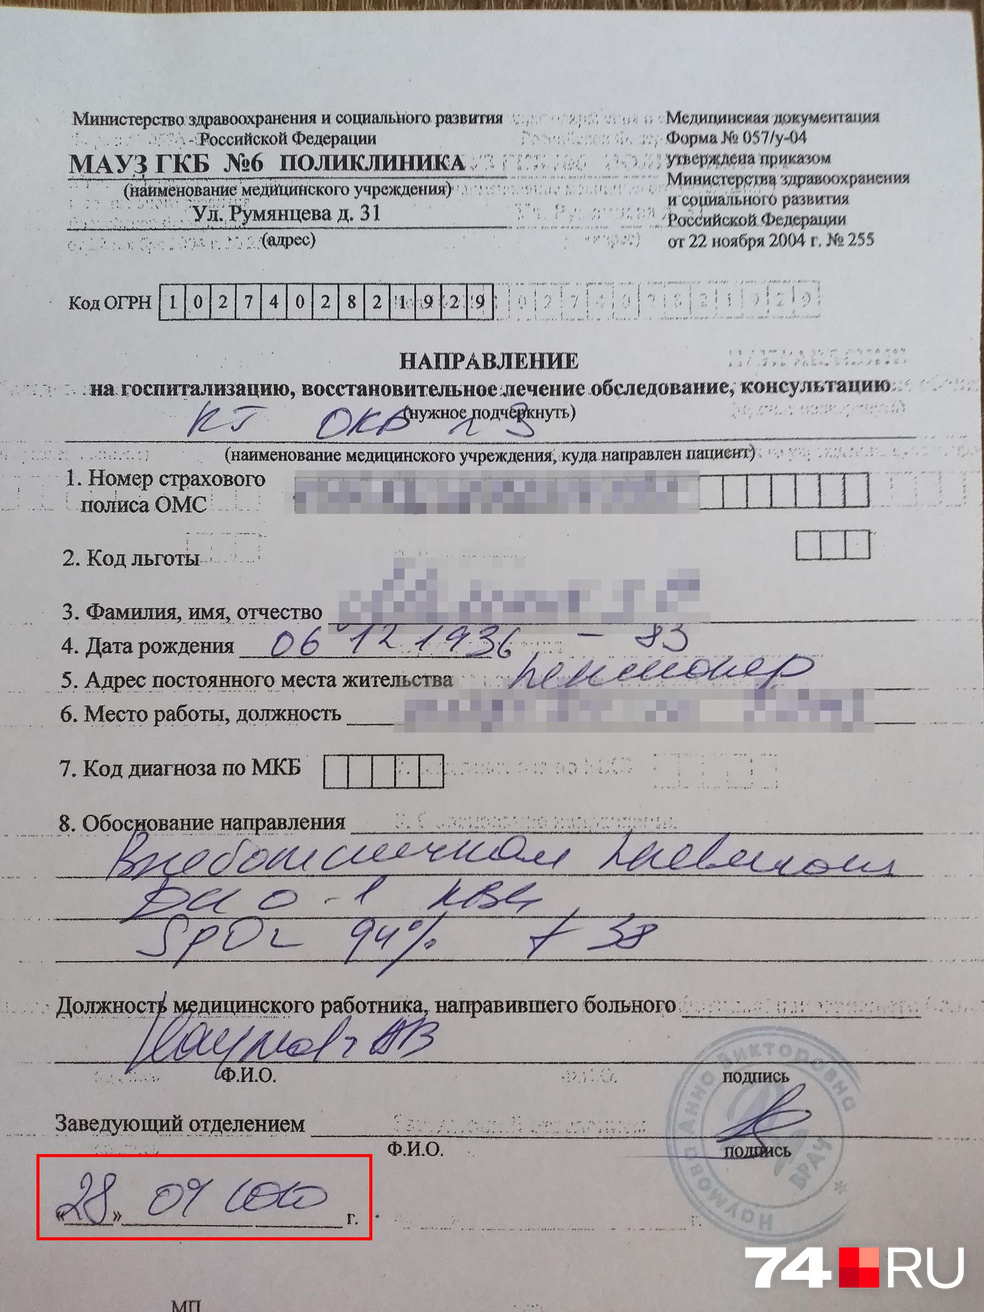 Министерство здравоохранения и социального развития
Российской Федерации
МАУЗ ГКБ №6 ПОЛИКЛИНИКА
(наименование медицинского учреждения)
Ул. Румянцева д. 31
(адрес)
Медицинская документация
Форма № 057/у-04
утверждена приказом
Министерства здравоохранения
и социального развития
Российской Федерации
от 22 ноября 2004 г. № 255
Код ОГРН 1027402821929
НАПРАВЛЕНИЕ
на госпитализацию, восстановительное лечение обследование, консультацию
(нужное подчеркнуть)
КТ ОКБ 3
(наименование медицинского учреждения, куда направлен пациент)
1. Номер страхового
полиса ОМС
2. Код льготы
3. Фамилия, имя, отчество
4. Дата рождения 06 12 1936 - 83
5. Адрес постоянного места жительства пенсионер
6. Место работы, должность
7. Код диагноза по МКБ
8. Обоснование направления
Внебольничная пневмония
ДН 0-1
SpO2 94% t 38
Должность медицинского работника, направившего больного
Наумова АВ
Ф.И.О.
подпись
Заведующий отделением
Ф.И.О.
подпись
Наумова Анна Викторовна
ВРАЧ
«28» 04 г.
МП
74 RU